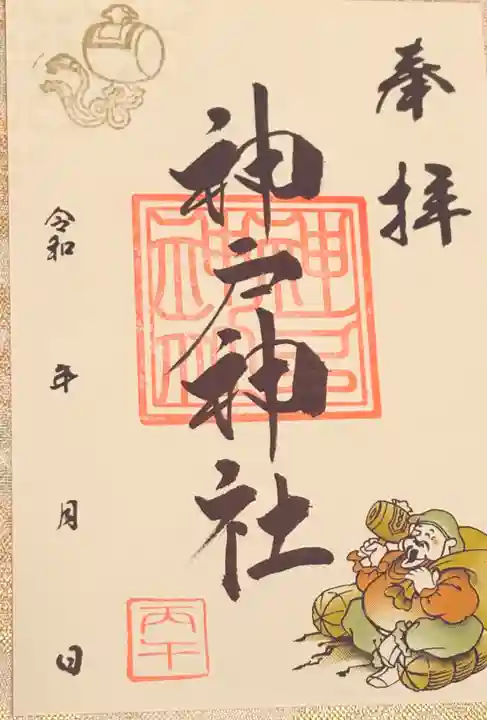 奉拝
神戸神社
令和 年 月 日
丙午